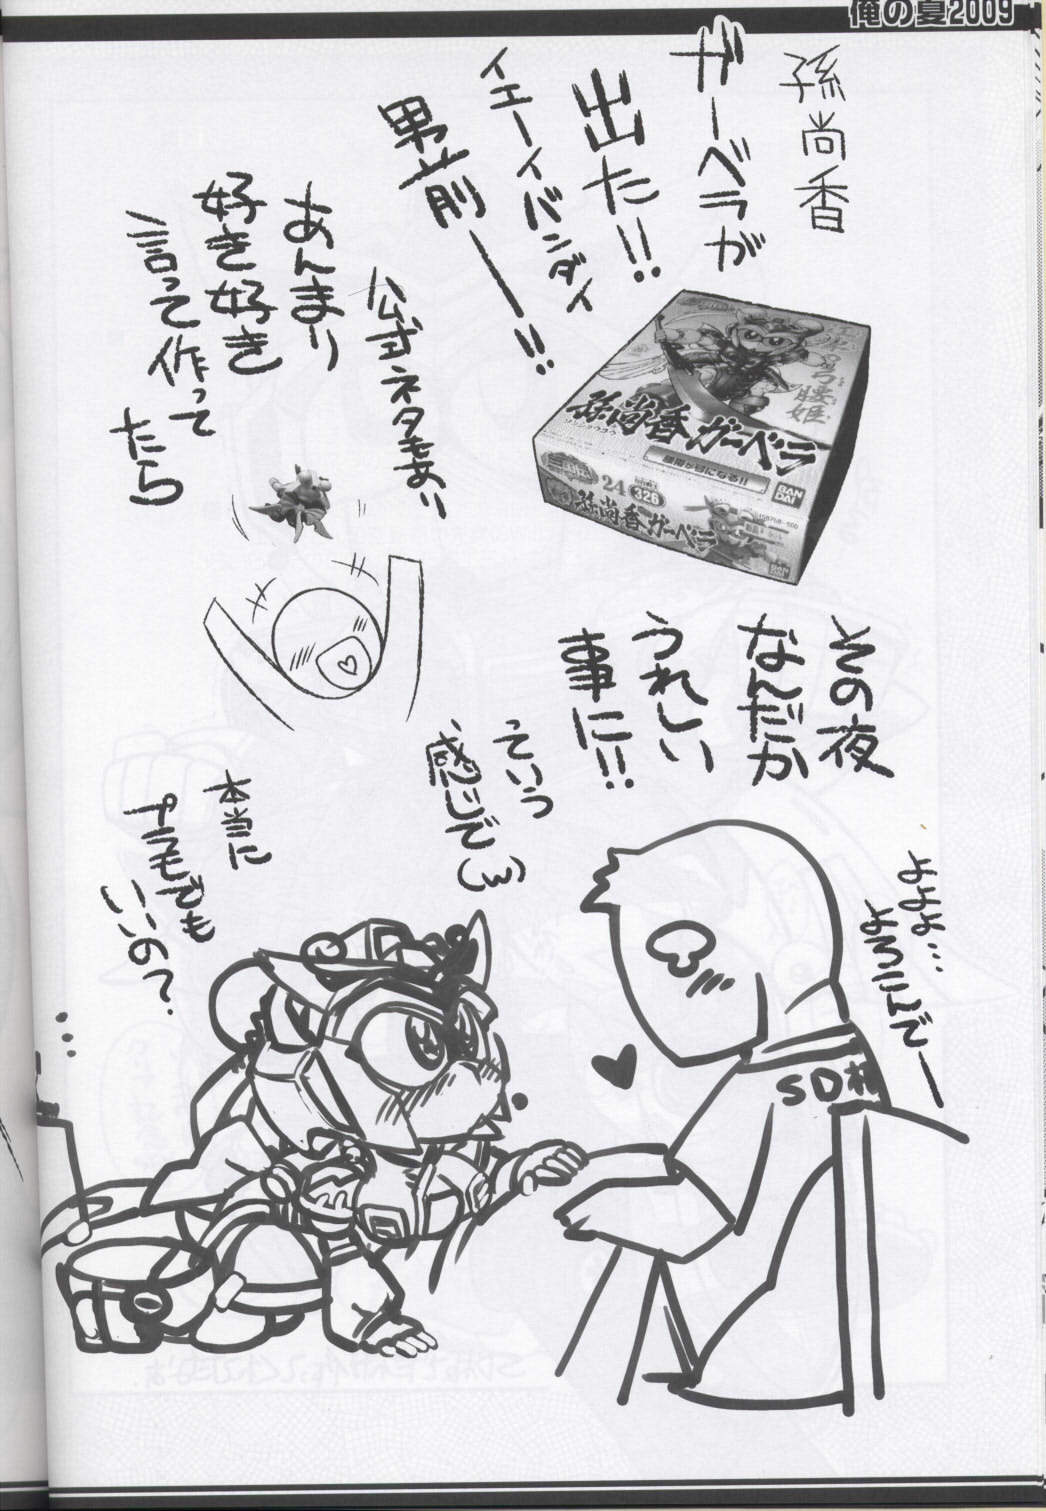 俺の夏2009
孫尚香
ガーベラが
出た!!
イエーイバンダイ
男前ーー!!
公式ネタ
あんまり
好き好き
言って作って
たら
弓腰姫
孫尚香ガーベラ
ソンショウコウ
BAN
DAI
24
326
孫尚香ガーベラ
その夜
なんだか
うれしい
事に!!
っていう
感じで(ω)
本当に
プラモでも
いいの?
よよよ…
よろこんでー
SD